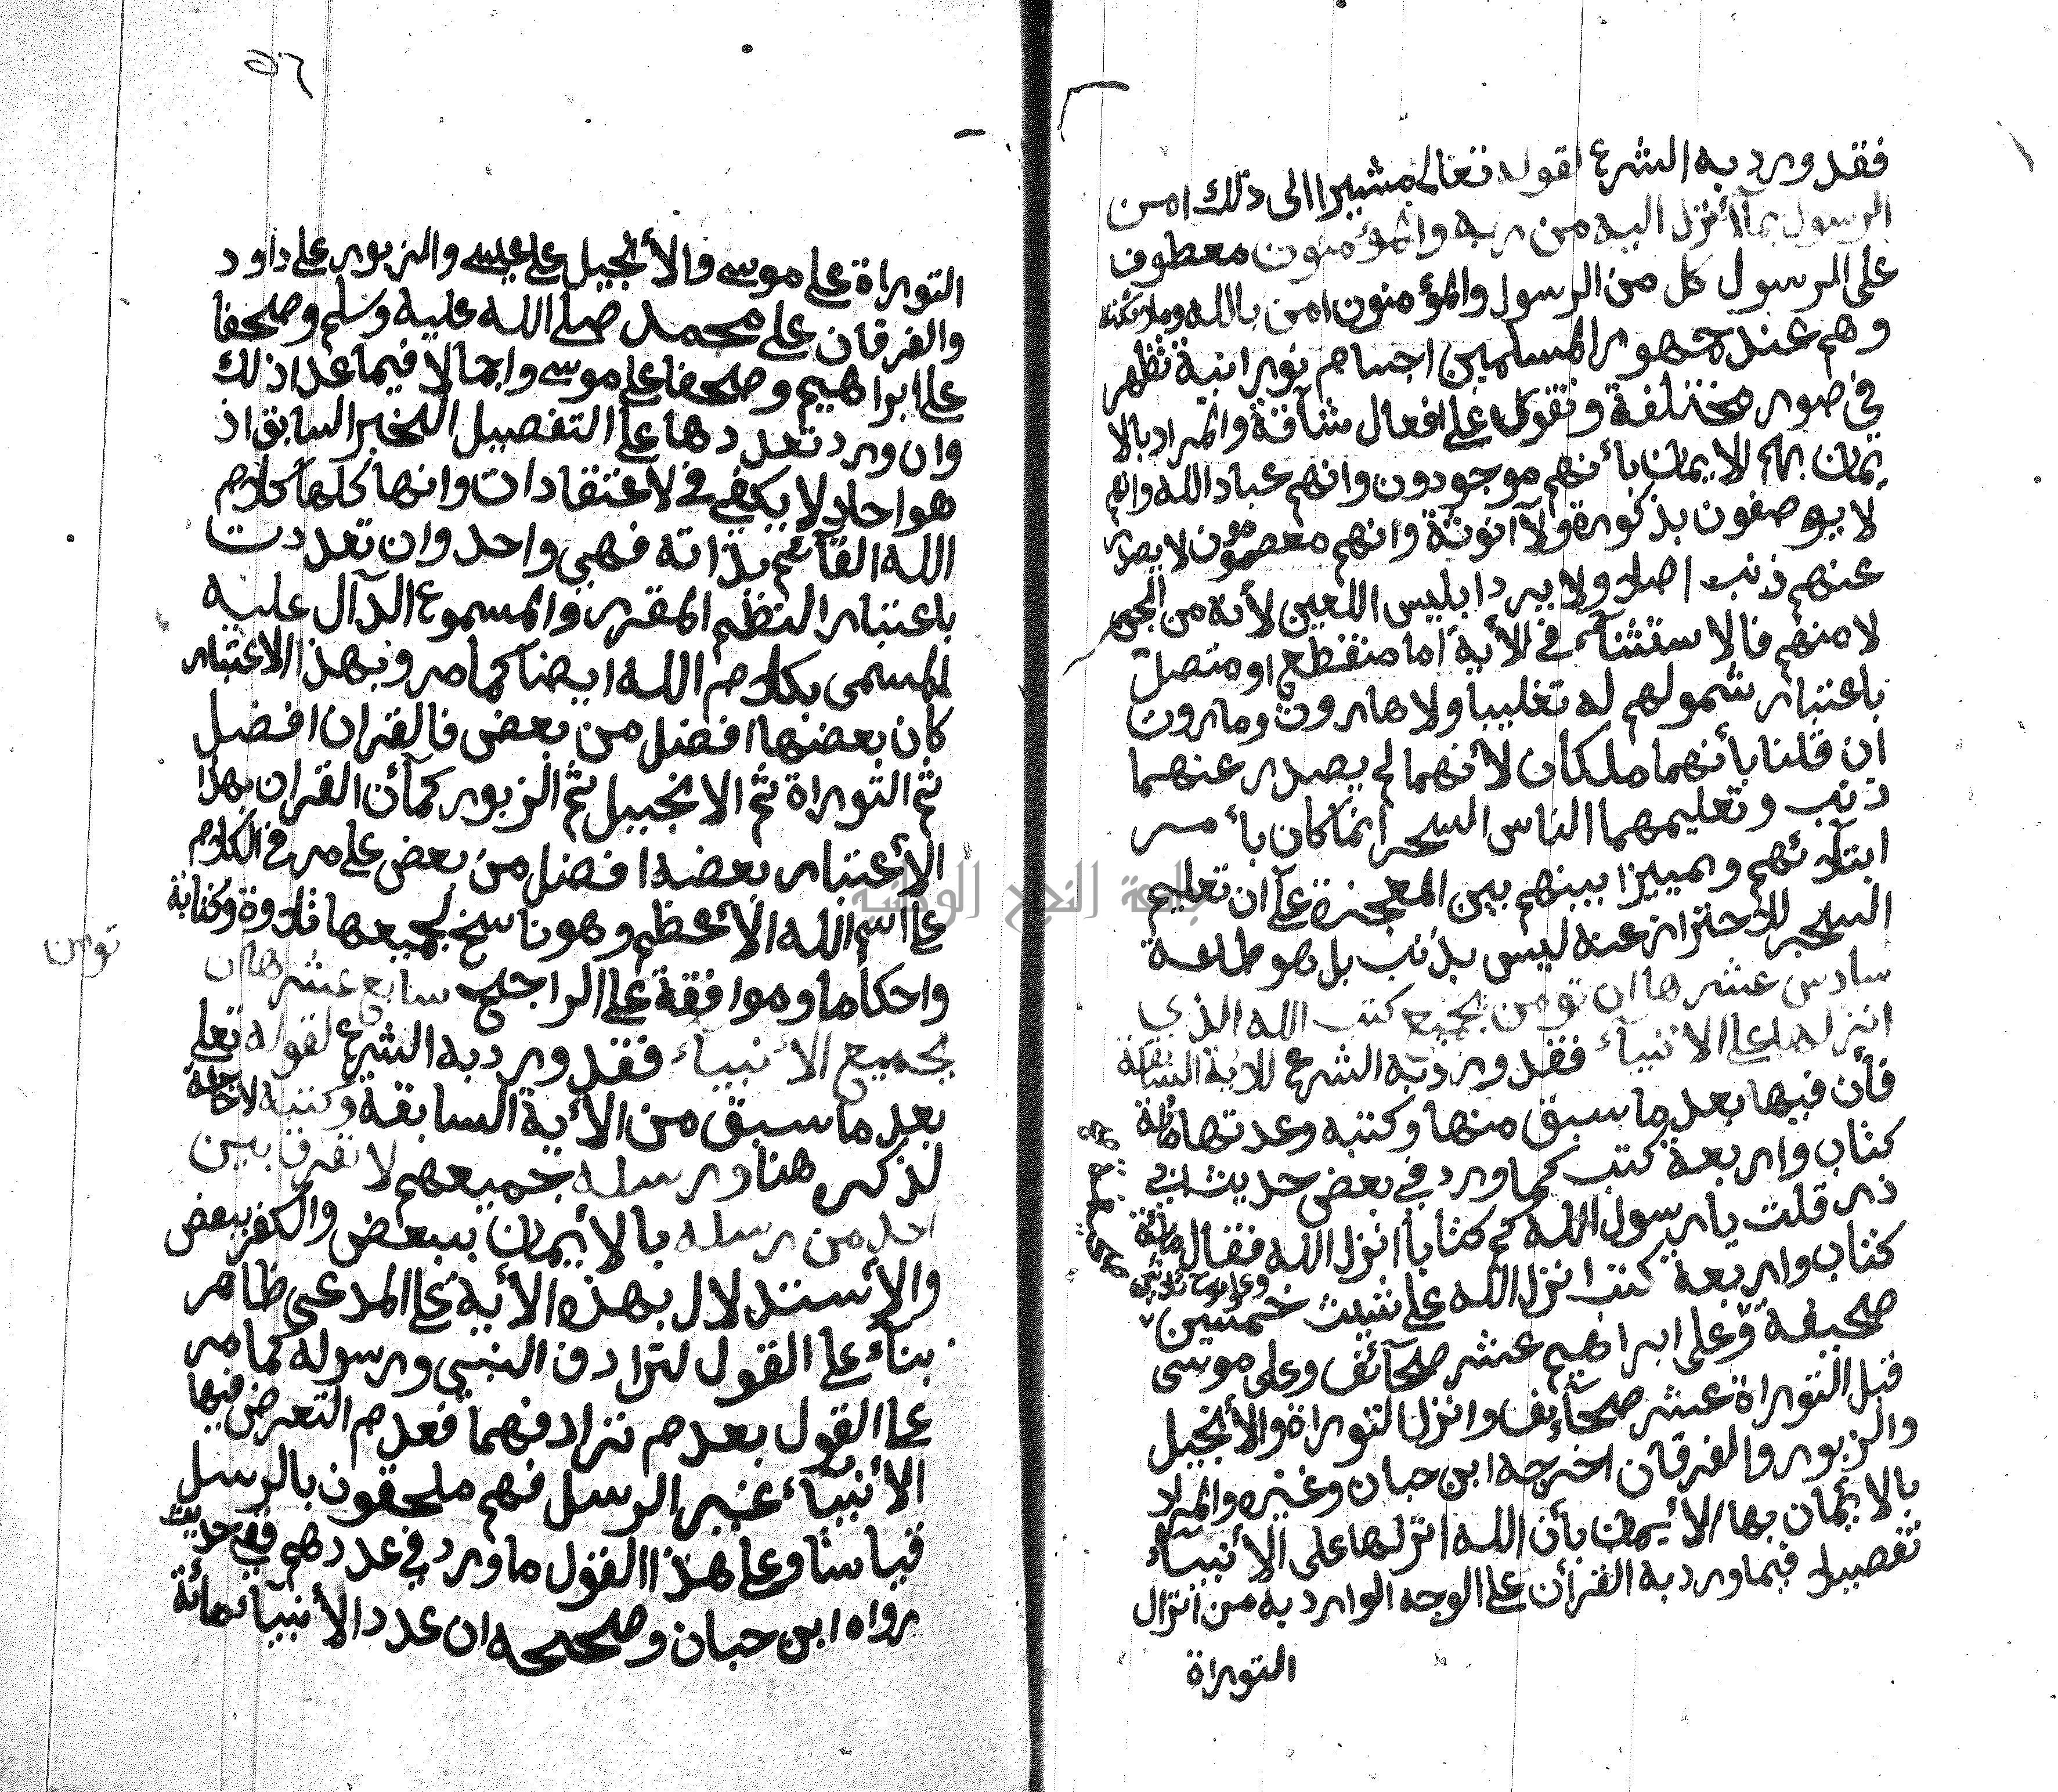 فقد ورد به الشرع لقوله تعالى مشيرا الى ذلك امن
الرسول بمآ أنزل اليه من ربه والمؤمنون معطوف
على الرسول كل من الرسول والمؤمنون امن بالله وملائكته
وهم عند جمهور المسلمين اجسام نورانية تظهر
في صور مختلفة وتقوى على افعال شآقة والمراد بالا
يمان بهم الايمان بأنهم موجودون وانهم عباد الله وانهم
لا يوصفون بذكورة ولآ انوثة وانهم معصومون لا يصدر
عنهم ذنب اصلا ولا يرد ابليس اللعين لأنه من الجن
لا منهم فالاستثنآء في الأية اما منقطع او متصل
باعتبار شمولهم له تغليبا ولا هاروت وماروت
ان قلنا بأنهما ملكان لأنهما لم يصدر عنهما
ذنب وتعليمهما الناس السحر انما كان بأمر
ابتلائهم وتمييزا بينهم بين المعجزة على ان تعليم
السحر للاحتراز عنه ليس بذنب بل هو طاعة
سادس عشرها ان تومن بجميع كتب الله الذي
انزلها على الانبيآء فقد ورد به الشرع للاية السابقة
فأن فيها بعد ما سبق منها وكتبه وعدتها مائة
كتاب واربعة كتب كما ورد في بعض حديث ابي
ذر قلت يا رسول الله كم كتابا انزل الله فقال مائة
كتاب واربعة كتب انزل الله على شيث خمسين
وعلى ادريس ثلاثين
صحيفة وعلى ابراهيم عشر صحآئف وعلى موسى
قبل التوراة عشر صحآئف وانزل التوراة والأنجيل
والزبور والفرقان اخرجه ابن حبان وغيره والمراد
بالايمان بها الأيمان بأن الله انزلها على الأنبيآء
تفصيلا فيما ورد به القرأن على الوجه الوارد به من انزال
التوراة
٥٦
التوراة على موسى والأنجيل على عيسى والزبور على داود
والفرقان على محمد صلى الله عليه وسلم وصحفا
على ابراهيم وصحفا على موسى واجمالا فيما عدا ذلك
وان ورد تعددها على التفصيل اللخبر السابق اذ
هو احاد لا يكفي في لاعتقادات وانها كلها كلام
الله القآئم بذاته فهي واحد وان تعددت
باعتبار النظم المقرر والمسموع الدآل عليه
المسمى بكلام الله ايضا كما مر وبهذا الاعتبار
كان بعضها افضل من بعض فالقران افضل
ثم التوراة ثم الانجيل ثم الزبور كمآ أن القران بهذا
الأعتبار بعضه افضل من بعض على مر في الكلام
على اسم الله الأعظم وهو ناسخ لجميعها تلاوة وكتابة
واحكاما وموافقة على الراجح سابع عشرها ان
تومن
بجميع الأنبيآء فقد ورد به الشرع لقوله تعلى
بعد ما سبق من الأية السابقة وكتبه لاحاطة
لذكر هنا ورسله جميعهم لا نفرق بين
احد من رسله بالأيمان ببعض والكفر ببعض
والأستدلال بهذه الأية على المدعى ظاهر
بنآء على القول لترادف النبي ورسوله كما مر
على القول بعدم ترادفهما فعدم التعرض فيها
الأنبيآء غير الرسل فهم ملحقون بالرسل
قياسا وعلى هذا القول ما ورد في عددهم ففي حديث
رواه ابن حبان وصححه ان عدد الأنبيآء مائة
جامعة النجاح الوطنية